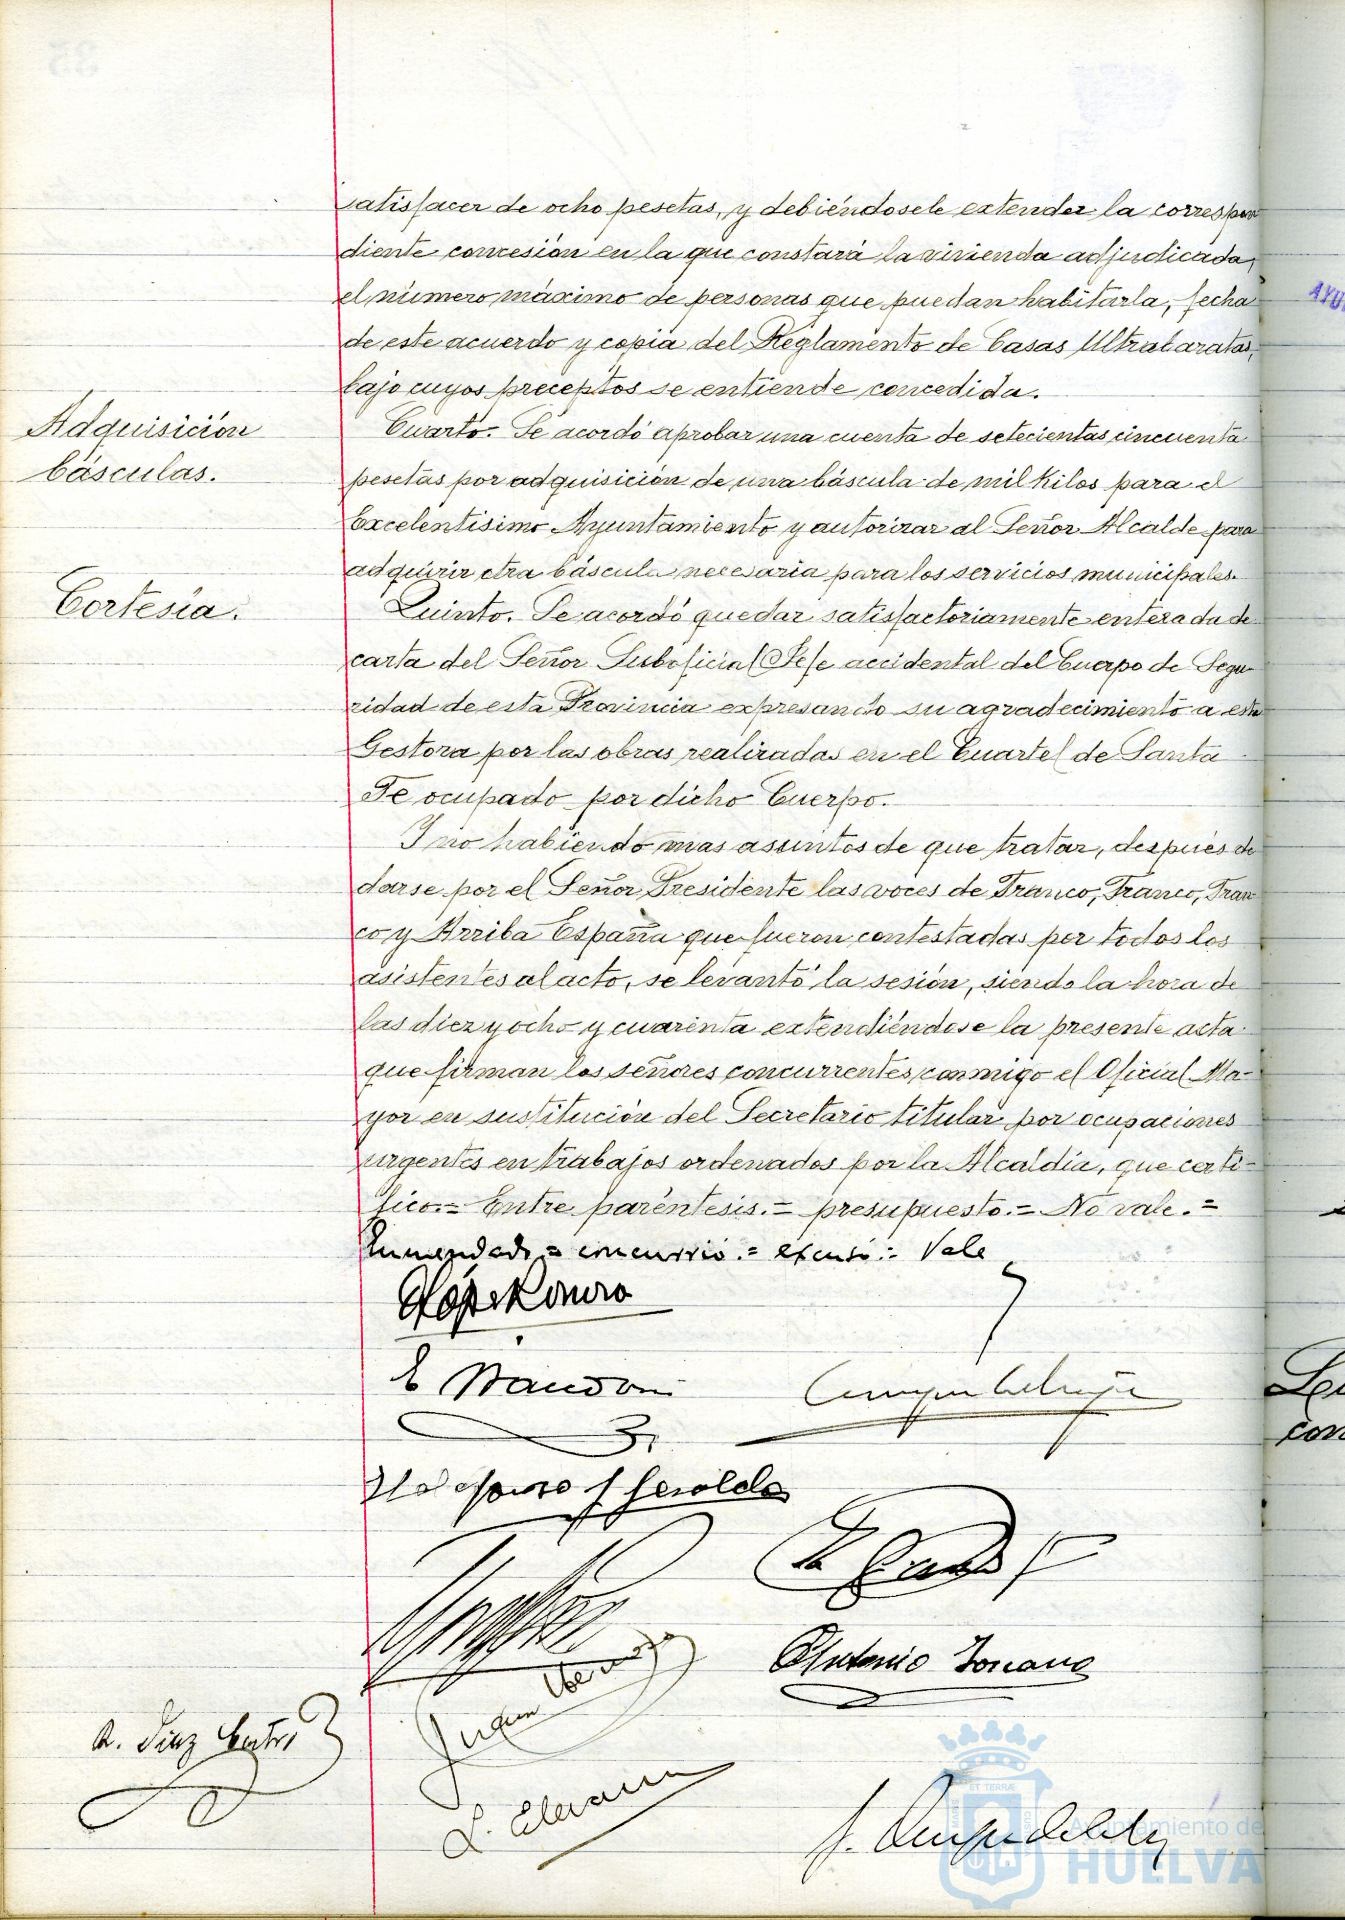 satisfacer de ocho pesetas, y debiéndosele extender la correspon
diente concesión en la que constará la vivienda adjudicada,
el número máximo de personas que puedan habitarla, fecha
de este acuerdo y copia del Reglamento de Casas Ultrabaratas,
bajo cuyos preceptos se entiende concedida.
Adquisición
básculas.
Cuarto. Se acordó aprobar una cuenta de setecientas cincuenta
pesetas por adquisición de una báscula de mil Kilos para el
Excelentísimo Ayuntamiento y autorizar al Señor Alcalde para
adquirir otra báscula necesaria para los servicios municipales.
Cortesía.
Quinto. Se acordó quedar satisfactoriamente enterada de
carta del Señor Suboficial Jefe accidental del Cuerpo de Segu-
ridad de esta Provincia expresando su agradecimiento a esta
Gestora por las obras realizadas en el Cuartel de Santa
Fe ocupado por dicho Cuerpo.
Y no habiendo mas asuntos de que tratar, después de
darse por el Señor Presidente las voces de Franco, Franco, Fran
co y Arriba España que fueron contestadas por todos los
asistentes al acto, se levantó la sesión, siendo la hora de
las diez y ocho y cuarenta extendiéndose la presente acta
que firman los señores concurrentes conmigo el Oficial Ma-
yor en sustitución del Secretario titular por ocupaciones
urgentes en trabajos ordenados por la Alcaldía, que certi-
fico.= Entre paréntesis.= presupuesto.= No vale.=
Enmendado = concurrió.= excusó.= Vale
E
Antonio
R. Diaz
Joaquin
L.
J.
ET TERRÆ
Ayuntamiento de
HUELVA
AYU
con